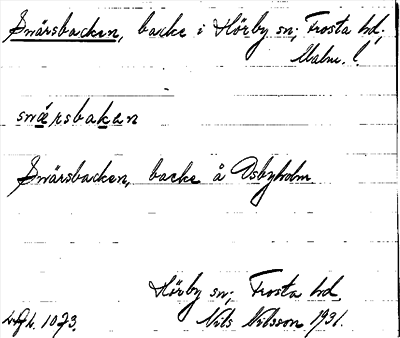 Snärsbacken, backe i Hörby sn; Frosta hd;
Malm. l.
snǽrsbakən
Snärsbacken, backe å Osbyholm.
Hörby sn; Frosta hd.
1073. Nils Nilsson 1931.